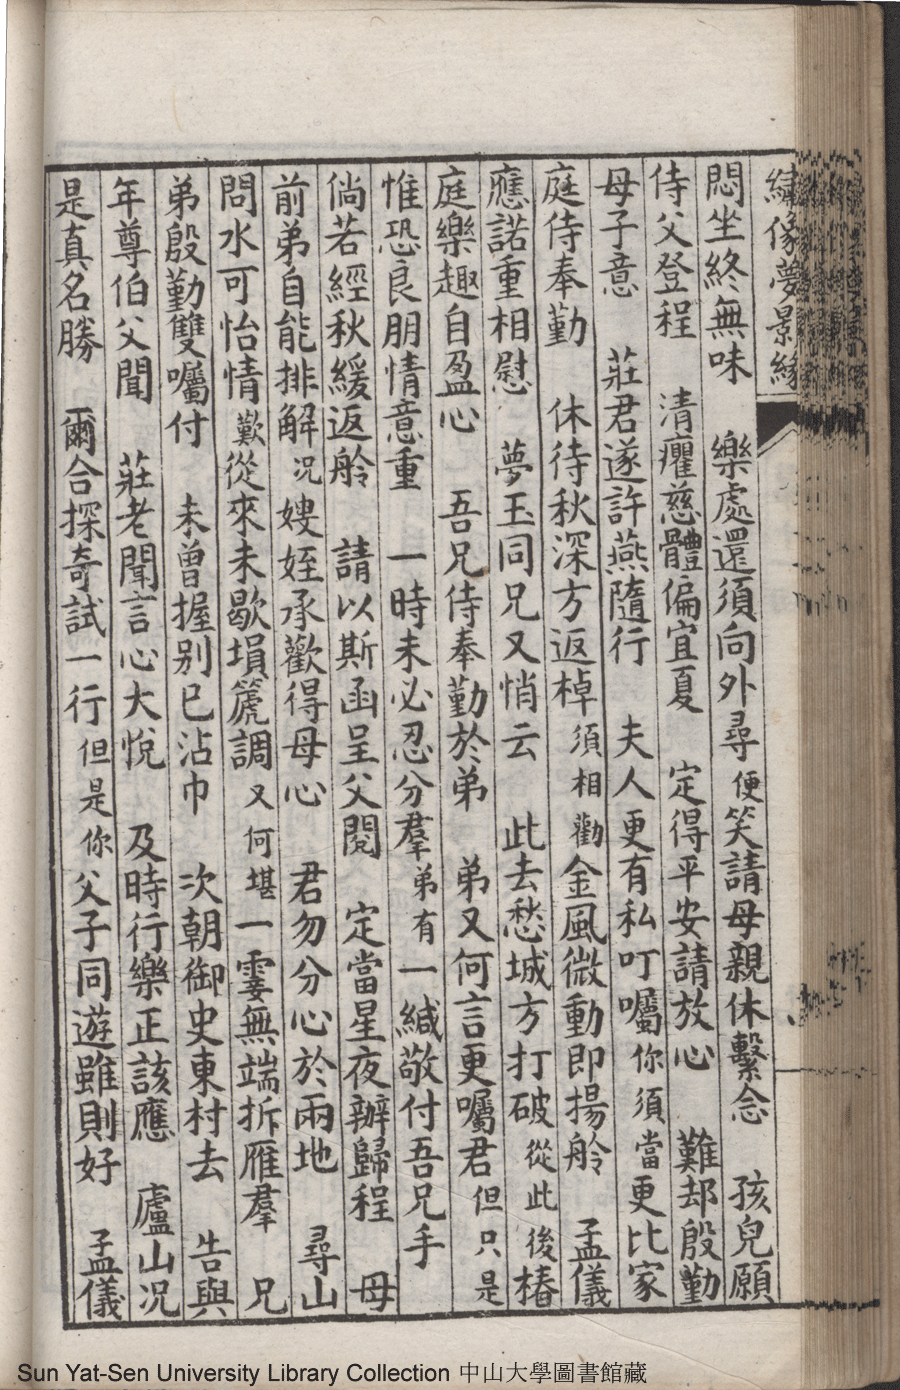 繡像夢景緣
悶坐終無味　樂處還須向外尋便笑請母親休繫念　孩兒願
侍父登程　清癯慈體偏宜夏　定得平安請放心　難却殷勤
母子意　莊君遂許燕隨行　夫人更有私叮囑你須當更比家
庭侍奉勤　休待秋深方返棹須相勸金風微動即揚舲　孟儀
應諾重相慰　夢玉同兄又悄云　此去愁城方打破從此後椿
庭樂趣自盈心　吾兄侍奉勤於弟　弟又何言更囑君但只是
惟恐良朋情意重　一時未必忍分羣弟有一緘敬付吾兄手
倘若經秋緩返舲　請以斯函呈父閱　定當星夜辦歸程　母
前弟自能排解况嫂姪承歡得母心　君勿分心於兩地　尋山
問水可怡情歎從來未歇塤篪調又何堪一霎無端拆雁羣　兄
弟殷勤雙囑付　未曾握別已沾巾　次朝御史東村去　告與
年尊伯父聞　莊老聞言心大悅　及時行樂正該應　廬山况
是真名勝　爾合探奇試一行但是你父子同遊雖則好　孟儀
Sun Yat-Sen University Library Collection 中山大學圖書館藏